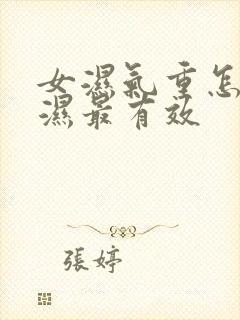 女濕氣重怎
濕最有效
張婷